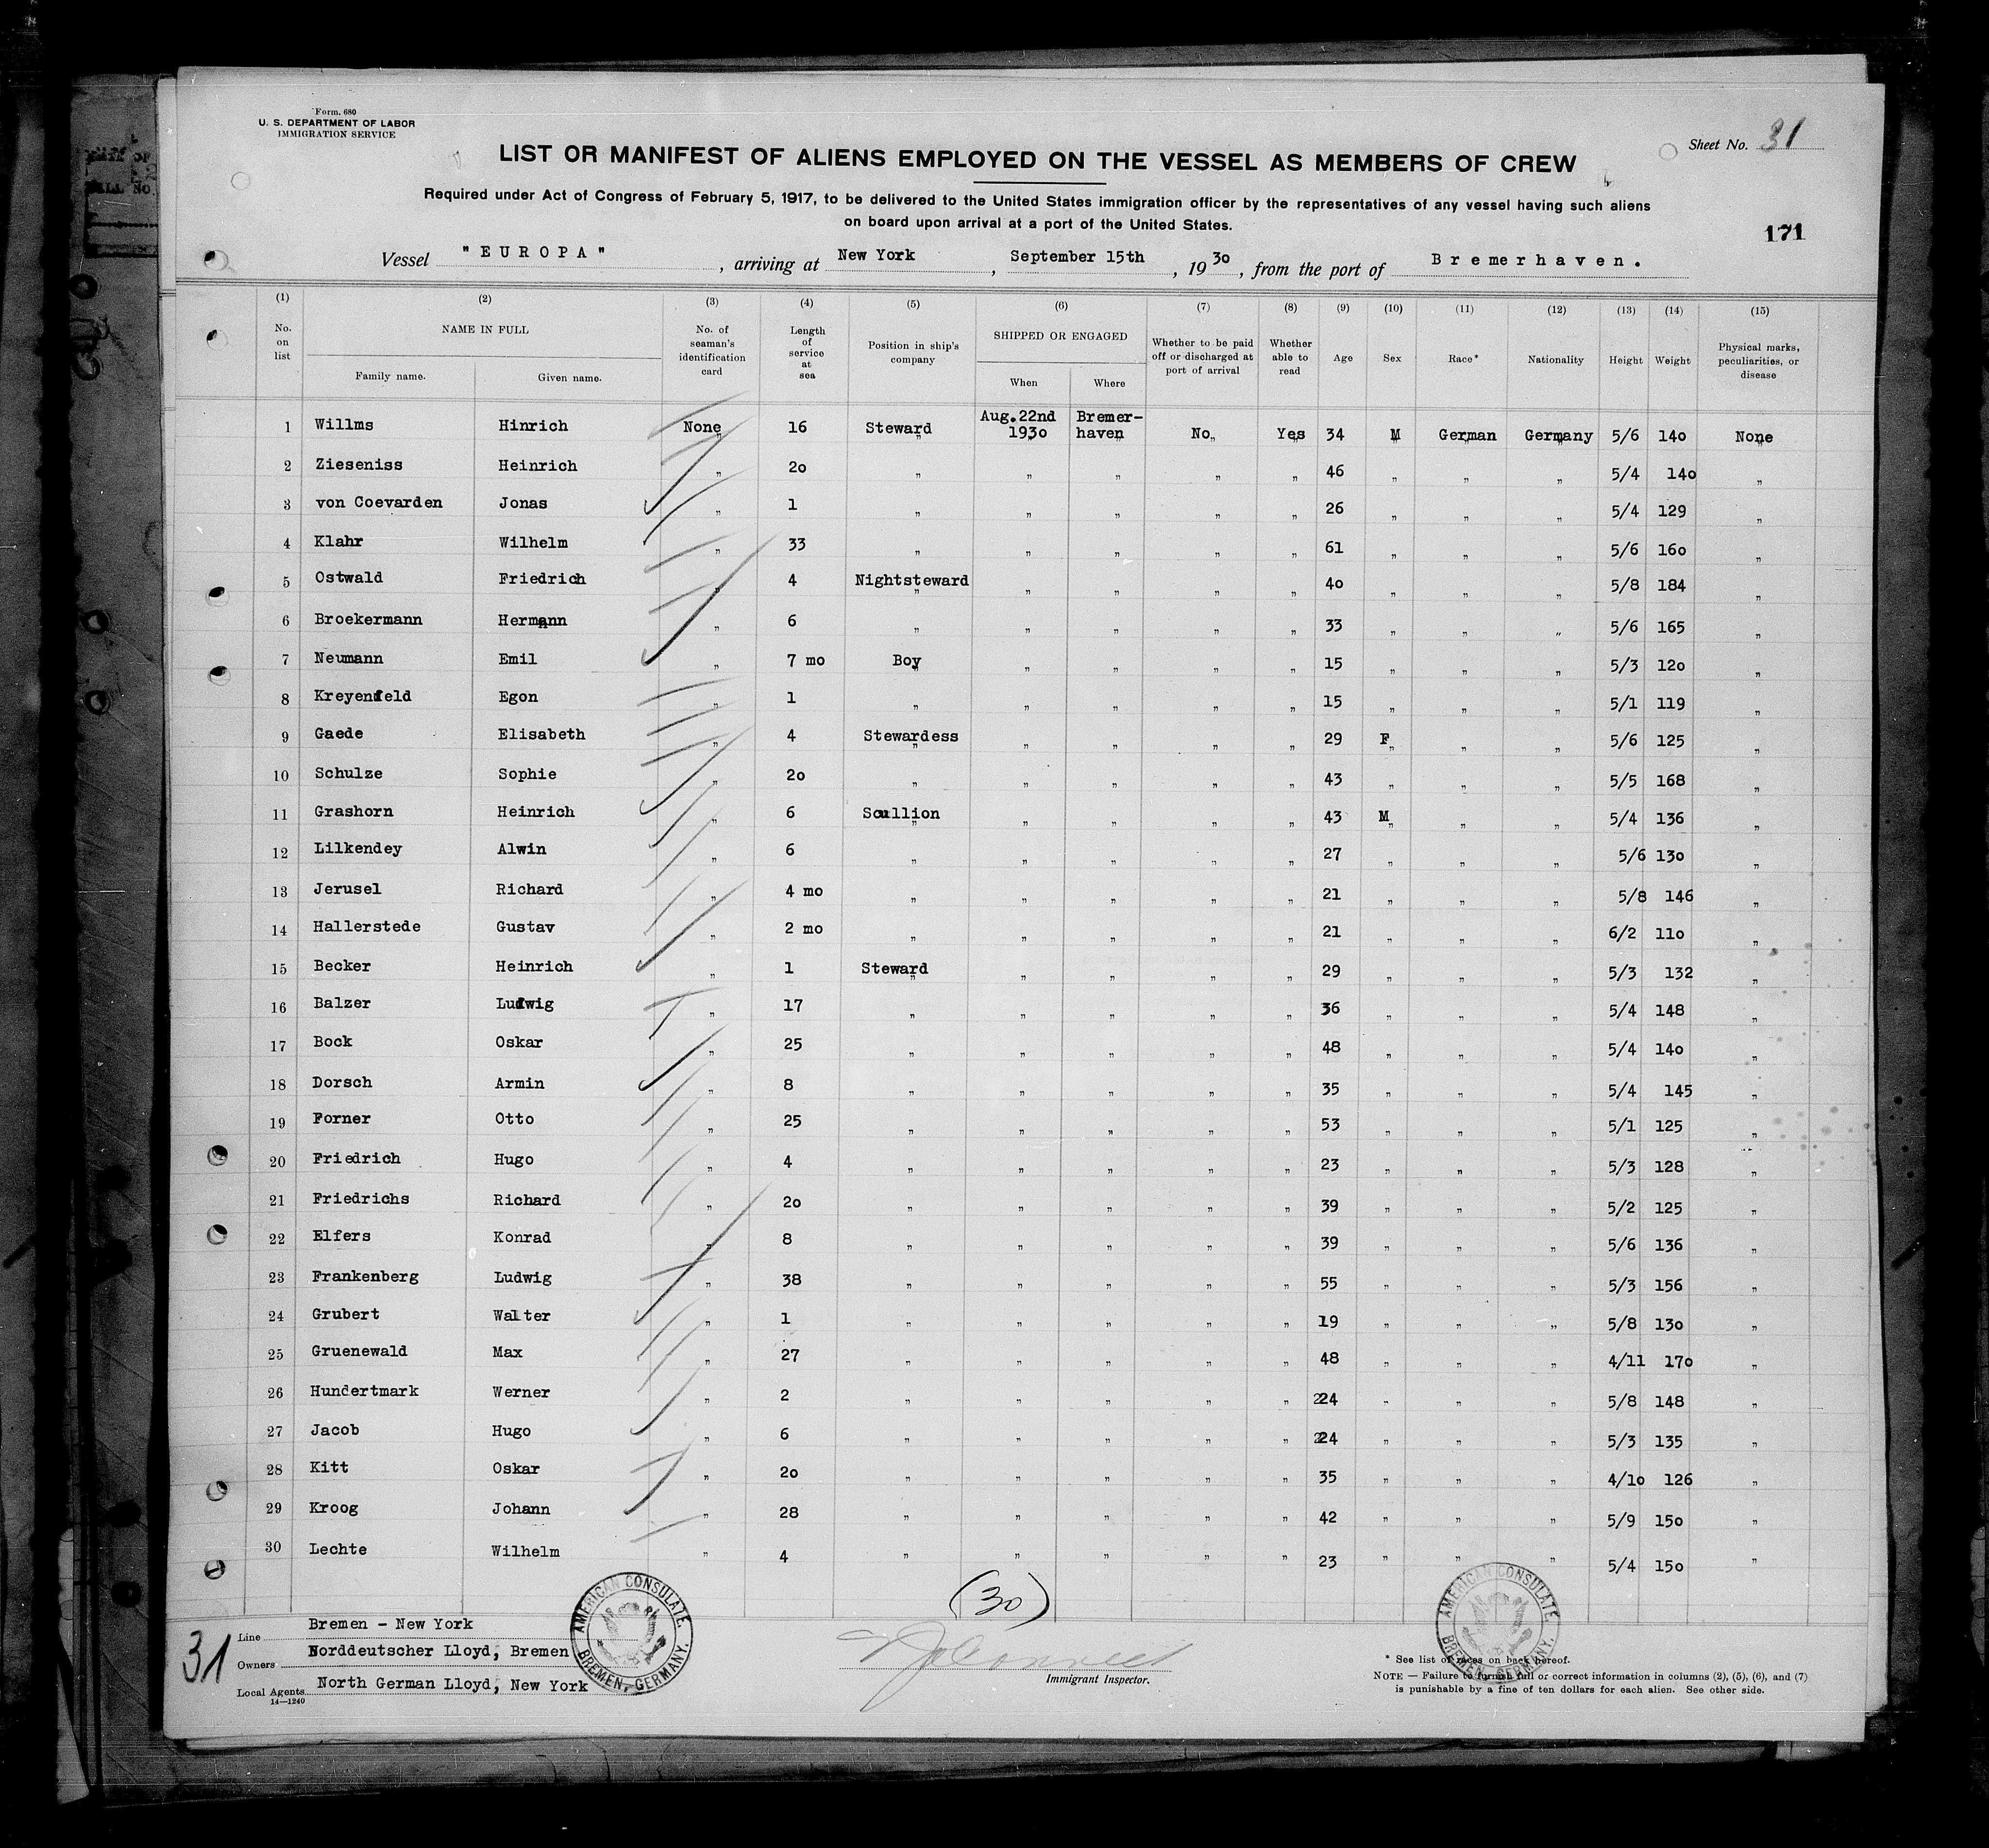 Form. 680
U. S. DEPARTMENT OF LABOR
IMMIGRATION SERVICE
Sheet No. 31
LIST OR MANIFEST OF ALIENS EMPLOYED ON THE VESSEL AS MEMBERS OF CREW
Required under Act of Congress of February 5, 1917, to be delivered to the United States immigration officer by the representatives of any vessel having such aliens
on board upon arrival at a port of the United States.
171
Vessel "EUROPA", arriving at New York, September 15th, 1930, from the port of Bremerhaven.
(1) (2) (3) (4) (5) (6) (7) (8) (9) (10) (11) (12) (13) (14) (15)
No. on list NAME IN FULL Family name. Given name. No. of seaman's identification card Length of service at sea Position in ship's company SHIPPED OR ENGAGED When Where Whether to be paid off or discharged at port of arrival Whether able to read Age Sex Race* Nationality Height Weight Physical marks, peculiarities, or disease
1 Willms Hinrich None 16 Steward Aug.22nd 1930 Bremer-haven No Yes 34 M German Germany 5/6 140 None
2 Zieseniss Heinrich " 20 " " " " " 46 " " " 5/4 140 "
3 von Coevarden Jonas " 1 " " " " " 26 " " " 5/4 129 "
4 Klahr Wilhelm " 33 " " " " " 61 " " " 5/6 160 "
5 Ostwald Friedrich " 4 Nightsteward " " " " 40 " " " 5/8 184 "
6 Broekermann Hermann " 6 " " " " " 33 " " " 5/6 165 "
7 Neumann Emil " 7 mo Boy " " " " 15 " " " 5/3 120 "
8 Kreyenfeld Egon " 1 " " " " " 15 " " " 5/1 119 "
9 Gaede Elisabeth " 4 Stewardess " " " " 29 F " " 5/6 125 "
10 Schulze Sophie " 20 " " " " " 43 " " " 5/5 168 "
11 Grashorn Heinrich " 6 Scullion " " " " 43 M " " 5/4 136 "
12 Lilkendey Alwin " 6 " " " " " 27 " " " 5/6 130 "
13 Jerusel Richard " 4 mo " " " " " 21 " " " 5/8 146 "
14 Hallerstede Gustav " 2 mo " " " " " 21 " " " 6/2 110 "
15 Becker Heinrich " 1 Steward " " " " 29 " " " 5/3 132 "
16 Balzer Ludwig " 17 " " " " " 36 " " " 5/4 148 "
17 Bock Oskar " 25 " " " " " 48 " " " 5/4 140 "
18 Dorsch Armin " 8 " " " " " 35 " " " 5/4 145 "
19 Forner Otto " 25 " " " " " 53 " " " 5/1 125 "
20 Friedrich Hugo " 4 " " " " " 23 " " " 5/3 128 "
21 Friedrichs Richard " 20 " " " " " 39 " " " 5/2 125 "
22 Elfers Konrad " 8 " " " " " 39 " " " 5/6 136 "
23 Frankenberg Ludwig " 38 " " " " " 55 " " " 5/3 156 "
24 Grubert Walter " 1 " " " " " 19 " " " 5/8 130 "
25 Gruenewald Max " 27 " " " " " 48 " " " 4/11 170 "
26 Hundertmark Werner " 2 " " " " " 24 " " " 5/8 148 "
27 Jacob Hugo " 6 " " " " " 24 " " " 5/3 135 "
28 Kitt Oskar " 20 " " " " " 35 " " " 4/10 126 "
29 Kroog Johann " 28 " " " " " 42 " " " 5/9 150 "
30 Lechte Wilhelm " 4 " " " " " 23 " " " 5/4 150 "
(30)
31
Line Bremen - New York
Owners Norddeutscher Lloyd, Bremen
Local Agents North German Lloyd, New York
14—1240
AMERICAN CONSULATE, BREMEN, GERMANY.
Immigrant Inspector.
AMERICAN CONSULATE, BREMEN, GERMANY.
* See list of races on back hereof.
NOTE — Failure to furnish full or correct information in columns (2), (5), (6), and (7)
is punishable by a fine of ten dollars for each alien. See other side.